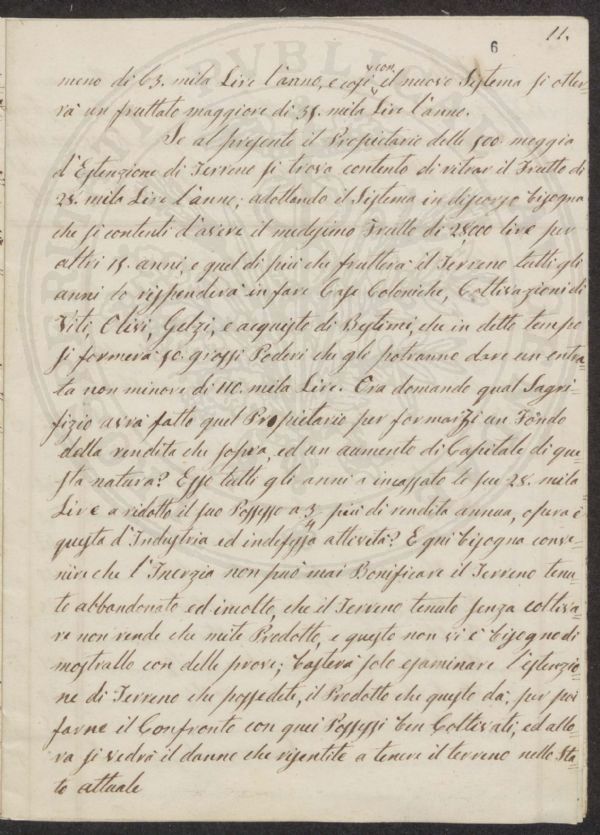 11.
6
meno di 63. mila Lire l'anno, e così con il nuovo Sistema si otter=
rà un fruttato maggiore di 35. mila Lire l'anno.
Se al presente il Propietario delle 500. moggia
d'Estenzione di Terreno si trova contento di ritrar il Frutto di
28. mila Lire l'anno; adottando il Sistema in discorso bisogna
che si contenti d'avere il medesimo Frutto di 28000 lire per
altri 15. anni, e quel di più che frutterà il Terreno tutti gli
anni lo rispenderà in fare Case Coloniche, Coltivazioni di
Viti, Olivi, Gelzi, e acquisto di Bestiami, che in detto tempo
si formerà 50. grossi Poderi che gli potranno dare un entra=
ta non minore di 110. mila Lire. Ora domando qual Sagri=
fizio avrà fatto quel Propietario per formarsi un Fondo
della rendita che sopra, ed un aumento di Capitale di que
sta natura? Esso tutti gli anni a incassato le sue 28. mila
Lire a ridotto il suo Possesso a 3/4 più di rendita annua, opera è
questa d'Industria ed indefessa attività? E qui bisogna conve=
nire che l'Inerzia non può mai Bonificare il Terreno tenu=
to abbandonato ed incolto, che il Terreno tenuto senza coltiva=
re non rende che mite Prodotto, e questo non vi è bisogno di
mostrallo con delle prove; basterà solo esaminare l'estenzio=
ne di Terreno che possedete, il Prodotto che questo dà, per poi
farne il Confronto con quei Possessi ben Coltivati, ed allo=
ra si vedrà il danno che risentite a tenere il terreno nello Sta=
to attuale